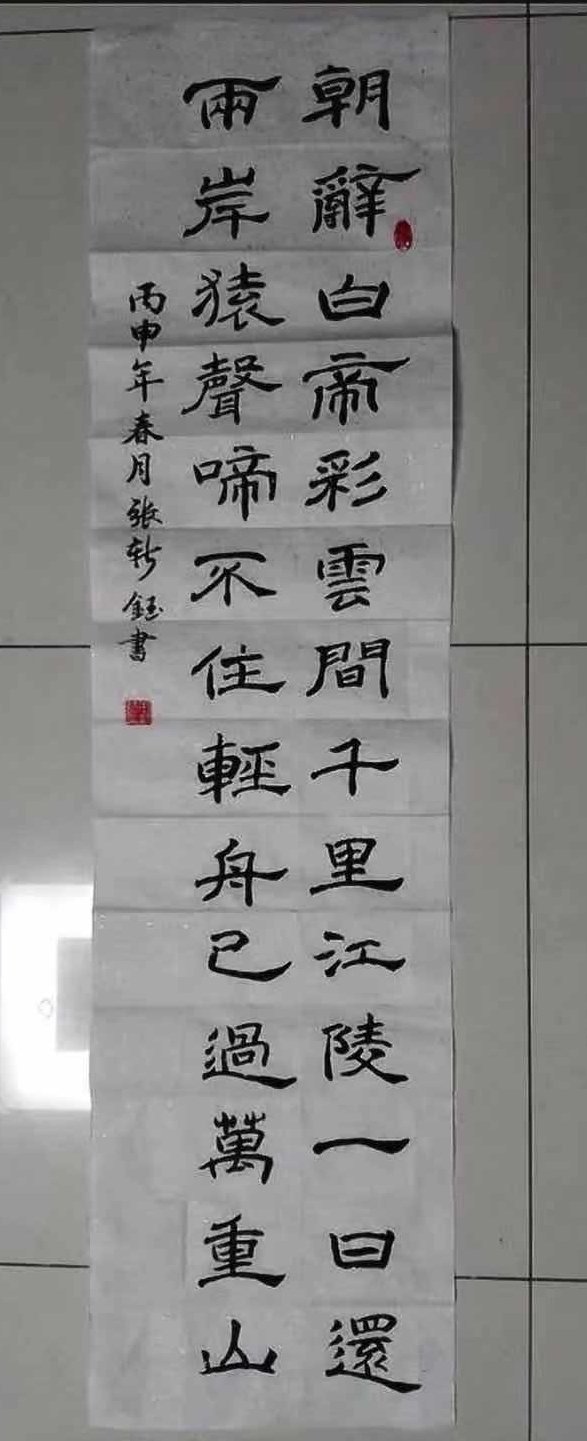 朝辭白帝彩雲間千里江陵一日還
兩岸猿聲啼不住輕舟已過萬重山
丙申年春月張新鈺書